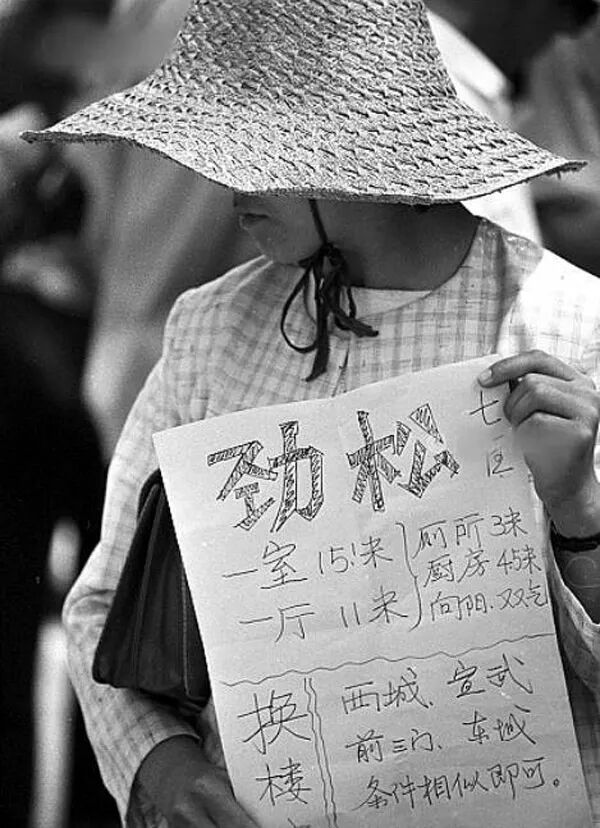 劲松 七区
一室 15.1米 厕所3米
厨房4.5米
一厅 11米 向阳、双气
换 西城、宣武
楼 前三门、东城
条件相似即可。